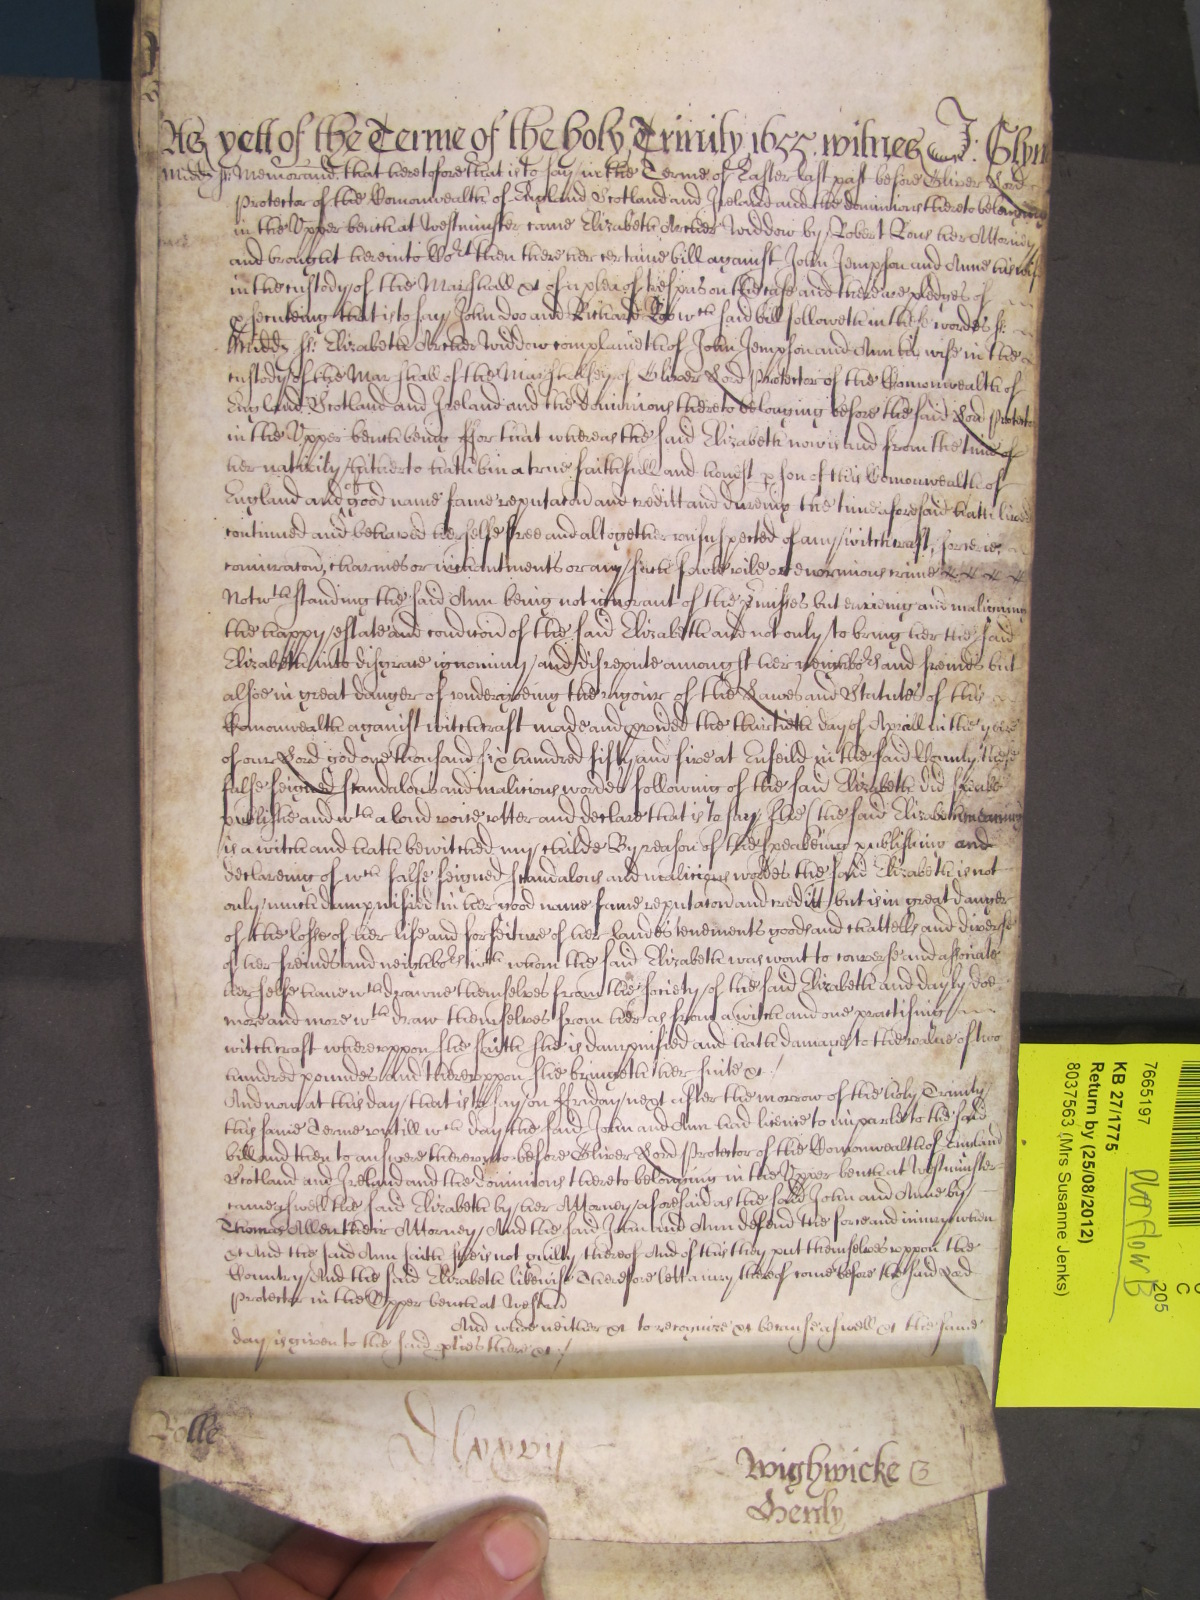 As yett of the Terme of the holy Trinity 1655 witnes J: Glyn
Midd ss: Memorand that heretofore that is to say in the Terme of Easter last past before Oliver Lord
Protector of the Comonwealth of England Scotland and Ireland and the dominions thereto belonging
in the Upper bench at Westminster came Elizabeth Archer Widdow by Robert Rous her Attorney
and brought here into Co^rt then there her certaine bill against John Jempson and Anne his wife
in the custody of the Marshall &c of a plea of trespas on the case and there are pledges of
psecuteing that is to say John Doo and Richard Roo w^ch said bill followeth in these wordes ss:
Midd ss: Elizabeth Archer Widdow complaineth of John Jempson and Ann his wife in the
custody of the Marshall of the Marshalsey of Oliver Lord Protector of the Comonwealth of
England Scotland and Ireland and the dominions thereto belonging before the said Lord Protector
in the Upper bench being ffor that whereas the said Elizabeth now is and from the time of
her nativity hitherto hath bin a true faithfull and honest pson of this Comonwealth of
England and of good name fame reputacon and creditt and dureing the time aforesaid hath lived
continued and behaved herselfe free and altogether unsuspected of any witchcraft, sorcerie,
coniuracon, charmes or inchantments or any such fowle vile or enormious crime
Notw^thstanding the said Ann being not ignorant of the pmisses but envieing and maligning
the happy estate and condicon of the said Elizabeth and not only to bring her the said
Elizabeth into disgrace ignominy and disrepute amongst her neighbo^rs and freinds but
alsoe in great danger of undergoeing the rigour of the Lawes and Statutes of this
Comonwealth against witchcraft made and pvided the thirtieth day of Aprill in the yeare
of our Lord god one thousand six hundred fifty and five at Enfeild in the said County these
false feigned scandalous and malicious wordes following of the said Elizabeth did speake
publishe and w^th a loud voice utter and declare that is to say Shee (the said Elizabeth meaning
is a witch and hath bewitched my childe By reason of the speakeing publishing and
declareing of w^ch false feigned scandalous and malicious wordes the said Elizabeth is not
only much dampnified in her good name fame reputacon and creditt but is in great danger
of the losse of her life and forfeiture of her landes tenements goods and chattells and diverse
of her freinds and neighbo^rs w^th whom the said Elizabeth was wont to converse and associate
her selfe have w^thdrawne themselves from the society of the said Elizabeth and dayly doe
more and more w^thdraw themselves from her as from a witch and one practising
witchcraft whereuppon shee saith shee is dampnified and hath damage to the value of two
hundred poundes and thereuppon shee bringeth her suite &c:/
And now at this day that is to say on ffriday next after the morrow of the holy Trinity
this same Terme untill w^ch day the said John and Ann had licence to imparle to the said
bill and then to answere thereunto before Oliver Lord Protector of the Comonwealth of England
Scotland and Ireland and the dominions thereto belonging in the Upper bench at Westminster
came aswell the said Elizabeth by her Attorney aforesaid as the said John and Anne by
Thomas Allen their Attorney And the said John and Ann defend the force and iniury when
&c And the said Ann saith shee is not guilty thereof And of this they put themselves uppon the
Country And the said Elizabeth likewise Therefore lett a iury thereof come before the said Lord
Protector in the Upper bench at Westm
And whoe neither &c to recognize &c because aswell &c the same
day is given to the said pties there &c:/
Rolle
Wighwicke
7665197
KB 27/1775
Return by (25/08/2012)
8037563 (Mrs Susanne Jenks)
205
C